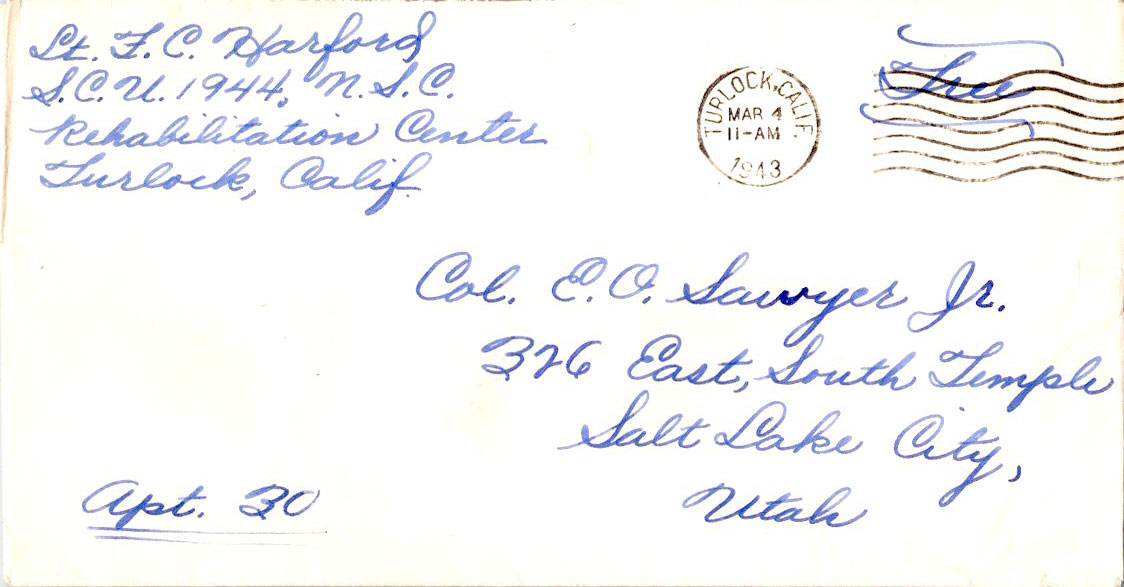 Lt. F. C. Harford
S.C.U. 1944, N.S.C.
Rehabilitation Center
Turlock, Calif.
TURLOCK, CALIF.
MAR 4
11-AM
1943
Free
Col. E. O. Sawyer Jr.
326 East, South Temple
Salt Lake City,
Utah
Apt. 30